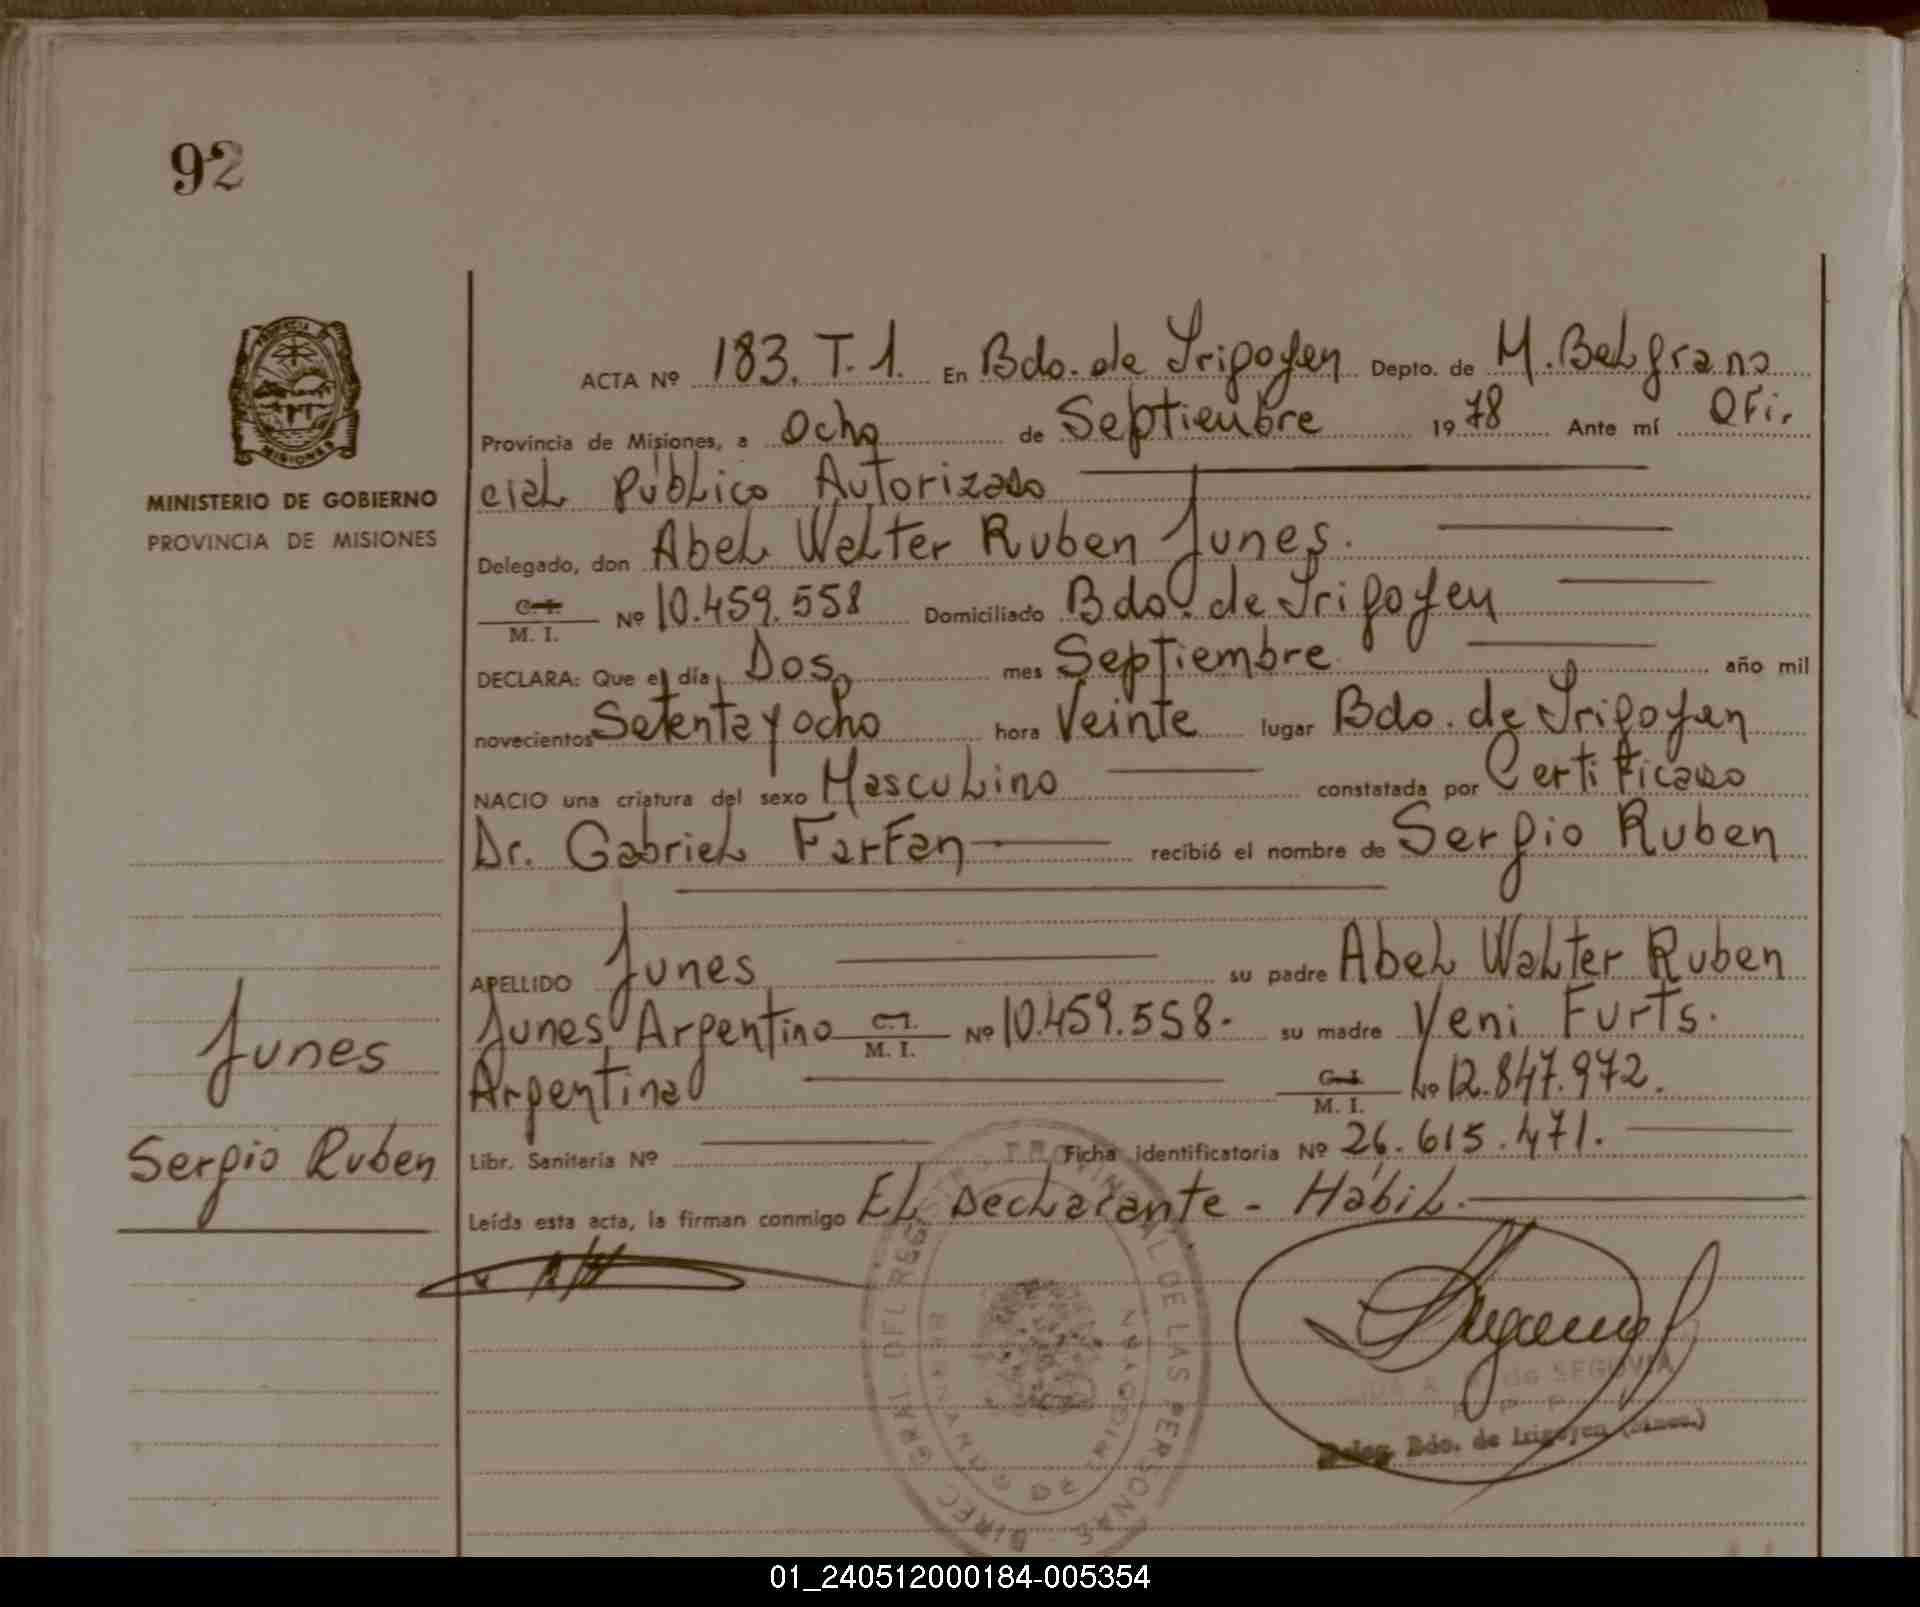 92
PROVINCIA DE
MISIONES
MINISTERIO DE GOBIERNO
PROVINCIA DE MISIONES
ACTA Nº 183. T. 1. En Bdo. de Irigoyen Depto. de M. Belgrano
Provincia de Misiones, a Ocho de Septiembre 1978 Ante mí Ofi-
cial Público Autorizado
Delegado, don Abel Walter Ruben Junes.
C. I.
M. I. Nº 10.459.558 Domiciliado Bdo. de Irigoyen
DECLARA: Que el día Dos mes Septiembre año mil
novecientos Setenta y ocho hora Veinte lugar Bdo. de Irigoyen
NACIO una criatura del sexo Masculino constatada por Certificado
Dr. Gabriel Farfan recibió el nombre de Sergio Ruben
APELLIDO Junes su padre Abel Walter Ruben
Junes Argentino C. I.
M. I. Nº 10.459.558. su madre Yeni Furts.
Argentina C. I.
M. I. Nº 12.847.972.
Libr. Sanitaria Nº Ficha identificatoria Nº 26.615.471.
Leída esta acta, la firman conmigo El Declarante - Hábil.
Junes
Sergio Ruben
DIREC. GRAL. DEL REGISTRO PROVINCIAL DE LAS PERSONAS
de SEGOVIA
Deleg. Bdo. de Irigoyen (Mnes.)
01_240512000184-005354